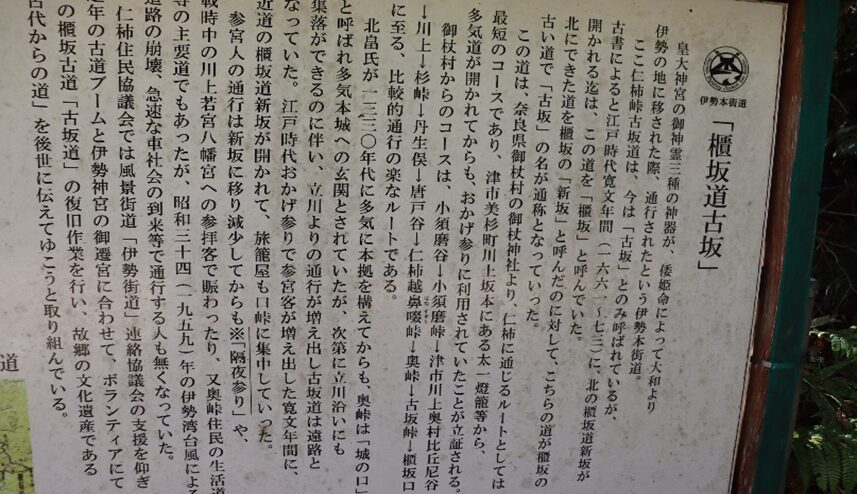 伊勢本街道
「櫃坂道古坂」
皇大神宮の御神霊三種の神器が、倭姫命によって大和より
伊勢の地に移された際、通行されたという伊勢本街道。
ここ仁柿峠古坂道は、今は「古坂」とのみ呼ばれているが、
古書によると江戸時代寛文年間(一六六一~七三)に、北の櫃坂道新坂が
開かれる迄は、この道を「櫃坂」と呼んでいた。
北にできた道を櫃坂の「新坂」と呼んだのに対して、こちらの道が櫃坂の
古い道で「古坂」の名が通称となっていった。
この道は、奈良県御杖村の御杖神社より、仁柿に通じるルートとしては
最短のコースであり、津市美杉町川上坂本にある太一燈籠等から、
多気道が開かれてからも、おかげ参りに利用されていたことが立証される。
御杖村からのコースは、小須磨谷→小須磨峠→津市川上奥村比丘尼谷
→川上→杉峠→丹生俣→唐戸谷→仁柿越鼻啜峠→奥峠→古坂峠→櫃坂口
に至る、比較的通行の楽なルートである。
北畠氏が一三三〇年代に多気に本拠を構えてからも、奥峠は「城の口」
と呼ばれ多気本城への玄関とされていたが、次第に立川沿いにも
集落ができるのに伴い、立川よりの通行が増え出し古坂道は遠路と
なっていった。江戸時代おかげ参りで参宮客が増え出した寛文年間に、
近道の櫃坂道新坂が開かれて、旅籠屋も口峠に集中していった。
参宮人の通行は新坂に移り減少してからも※「隔夜参り」や、
戦時中の川上若宮八幡宮への参拝客で賑わったり、又奥峠住民の生活道
等の主要道でもあったが、昭和三十四(一九五九)年の伊勢湾台風による
道路の崩壊、急速な車社会の到来等で通行する人も無くなっていた。
仁柿住民協議会では風景街道「伊勢街道」連絡協議会の支援を仰ぎ
年の古道ブームと伊勢神宮の御遷宮に合わせて、ボランティアにて
の櫃坂古道「古坂道」の復旧作業を行い、故郷の文化遺産である
古代からの道」を後世に伝えてゆこうと取り組んでいる。
道